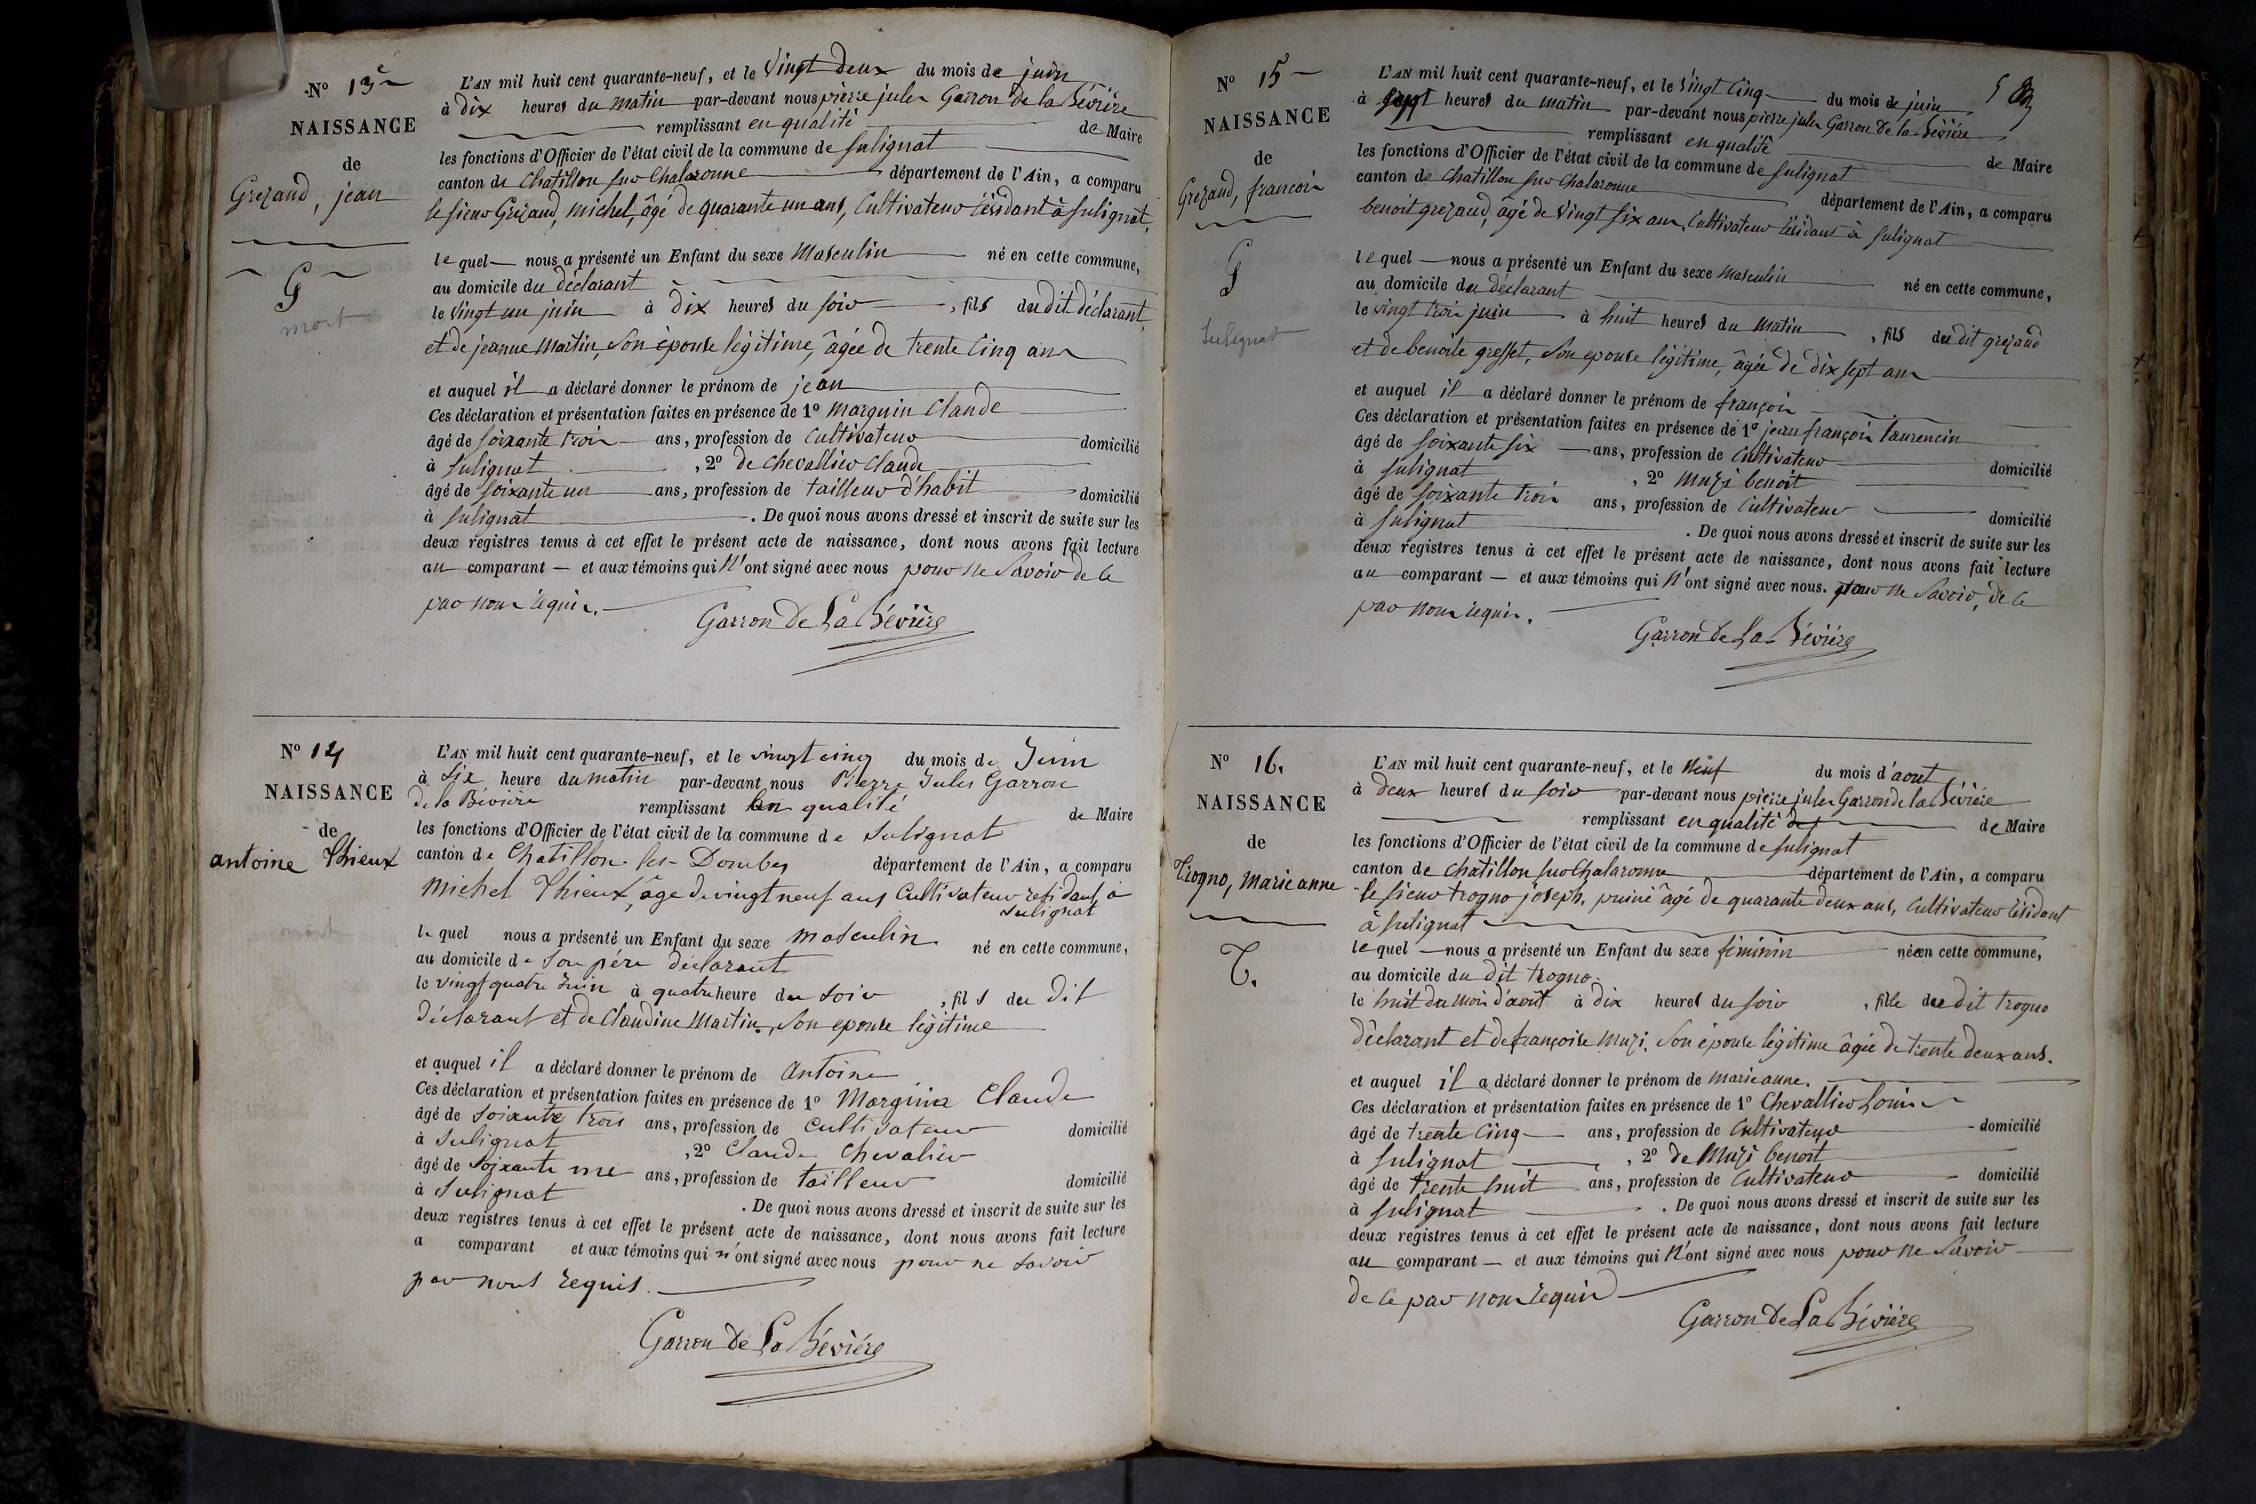 No 13e
NAISSANCE
de
Grezaud, jean
G
mort
L'AN mil huit cent quarante-neuf, et le Vingt deux du mois de juin
à dix heures du matin par-devant nous pierre jules Garron de la Bévière
remplissant en qualité de Maire
les fonctions d'Officier de l'état civil de la commune de Sulignat
canton de Chatillon sur Chalaronne département de l'Ain, a comparu
le sieur Grezaud, michel, âgé de quarante un ans, Cultivateur résidant à Sulignat,
le quel nous a présenté un Enfant du sexe Masculin né en cette commune,
au domicile du déclarant
le vingt un juin à dix heures du soir, fils du dit déclarant,
et de jeanne Martin, Son épouse légitime, âgée de trente cinq ans
et auquel il a déclaré donner le prénom de jean
Ces déclaration et présentation faites en présence de 1o marguin Claude
âgé de soixante trois ans, profession de Cultivateur domicilié
à Sulignat, 2o de chevallier Claude
âgé de soixante un ans, profession de tailleur d'habit domicilié
à Sulignat. De quoi nous avons dressé et inscrit de suite sur les
deux registres tenus à cet effet le présent acte de naissance, dont nous avons fait lecture
au comparant — et aux témoins qui N'ont signé avec nous pour ne Savoir de ce
par nous requis.
Garron De La Bévière
No 14
NAISSANCE
de
antoine Thieux
L'AN mil huit cent quarante-neuf, et le vingt cinq du mois de Juin
à Six heure du matin par-devant nous Pierre Jules Garron
de la Bévière remplissant en qualité de Maire
les fonctions d'Officier de l'état civil de la commune de Sulignat
canton de Chatillon-les-Dombes département de l'Ain, a comparu
Michel Thieux, âge de vingt neuf ans Cultivateur residant à
Sulignat
le quel nous a présenté un Enfant du sexe masculin né en cette commune,
au domicile de son père déclarant
le vingt quatre Juin à quatre heure du soir, fils du dit
déclarant et de Claudine Martin, Son epouse légitime
et auquel il a déclaré donner le prénom de Antoine
Ces déclaration et présentation faites en présence de 1o Marguin Claude
âgé de soixante trois ans, profession de Cultivateur domicilié
à Sulignat, 2o Claude Chevalier
âgé de soixante une ans, profession de tailleur domicilié
à Sulignat. De quoi nous avons dressé et inscrit de suite sur les
deux registres tenus à cet effet le présent acte de naissance, dont nous avons fait lecture
a comparant et aux témoins qui n'ont signé avec nous pour ne savoir
par nous requis.
Garron De La Bévière
No 15
NAISSANCE
de
Grezaud, françois
G
Sulignat
L'AN mil huit cent quarante-neuf, et le vingt Cinq du mois de juin
à sept heures du matin par-devant nous pierre jules Garron de la Bévière
remplissant en qualité de Maire
les fonctions d'Officier de l'état civil de la commune de Sulignat
canton de Chatillon sur Chalaronne département de l'Ain, a comparu
benoit grezaud, âgé de Vingt six ans, Cultivateur résidant à Sulignat
le quel — nous a présenté un Enfant du sexe masculin né en cette commune,
au domicile du déclarant
le vingt trois juin à huit heures du matin, fils du dit grezaud
et de benoite gresset, Son epouse légitime, âgée de dix sept ans
et auquel il a déclaré donner le prénom de françois
Ces déclaration et présentation faites en présence de 1o jean françois laurencin
âgé de soixante six ans, profession de Cultivateur domicilié
à Sulignat, 2o muzi benoit
âgé de soixante trois ans, profession de Cultivateur domicilié
à Sulignat. De quoi nous avons dressé et inscrit de suite sur les
deux registres tenus à cet effet le présent acte de naissance, dont nous avons fait lecture
au comparant — et aux témoins qui N'ont signé avec nous. pour ne Savoir, de ce
par nous requis.
Garron de La Bévière
No 16.
NAISSANCE
de
Trogno, marie anne
T.
L'AN mil huit cent quarante-neuf, et le Neuf du mois d'aout
à deux heures du soir par-devant nous pierre jules Garron de la Bévière
remplissant en qualité de Maire
les fonctions d'Officier de l'état civil de la commune de Sulignat
canton de chatillon sur Chalaronne département de l'Ain, a comparu
le sieur trogno joseph, puiné âgé de quarante deux ans, Cultivateur résidant
à Sulignat
le quel — nous a présenté un Enfant du sexe féminin née en cette commune,
au domicile du dit trogno.
le huit du mois d'août à dix heures du soir, fille du dit trogno
déclarant et de françoise Muzi, Son épouse légitime âgée de trente deux ans.
et auquel il a déclaré donner le prénom de marie anne.
Ces déclaration et présentation faites en présence de 1o Chevallier Louis
âgé de trente cinq ans, profession de Cultivateur domicilié
à Sulignat, 2o de Muzi benoit
âgé de trente huit ans, profession de Cultivateur domicilié
à Sulignat. De quoi nous avons dressé et inscrit de suite sur les
deux registres tenus à cet effet le présent acte de naissance, dont nous avons fait lecture
au comparant — et aux témoins qui N'ont signé avec nous pour ne Savoir
de ce par nous requis
Garron De La Bévière